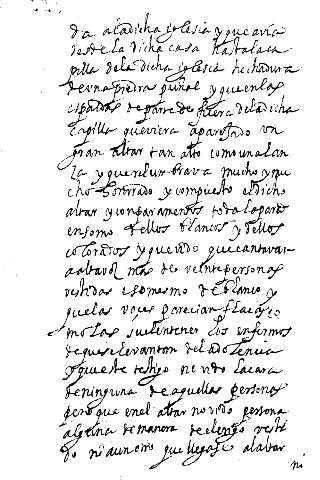 da a la dicha yglesia y que avia
desde la dicha casa hasta la ca
pilla de la dicha yglesia hechadura
de vna piedra puñal y que en las
espaldas de parte de fuera de la dicha
capilla que viera aparejado un
gran altar tan alto como una lan
ça y que relunbrava mucho y mu
cho honrrado y compuesto el dicho
altar y con paramentos todo la pared
ensomo dellos blancos y dellos
colorados y que vido que cantavan
a alta voz mas de veinte personas
vestidas eso mesmo de blanco y
que las voçes parecian flacas co
mo las suelen tener los enfermos
de que se levantan de la dolencia
y que este testigo no vido la cara
de ninguna de aquellas personas
pero que en el altar no vido persona
alguna de manera de clerigo vesti
do ni aun otro que llegase al altar
ni